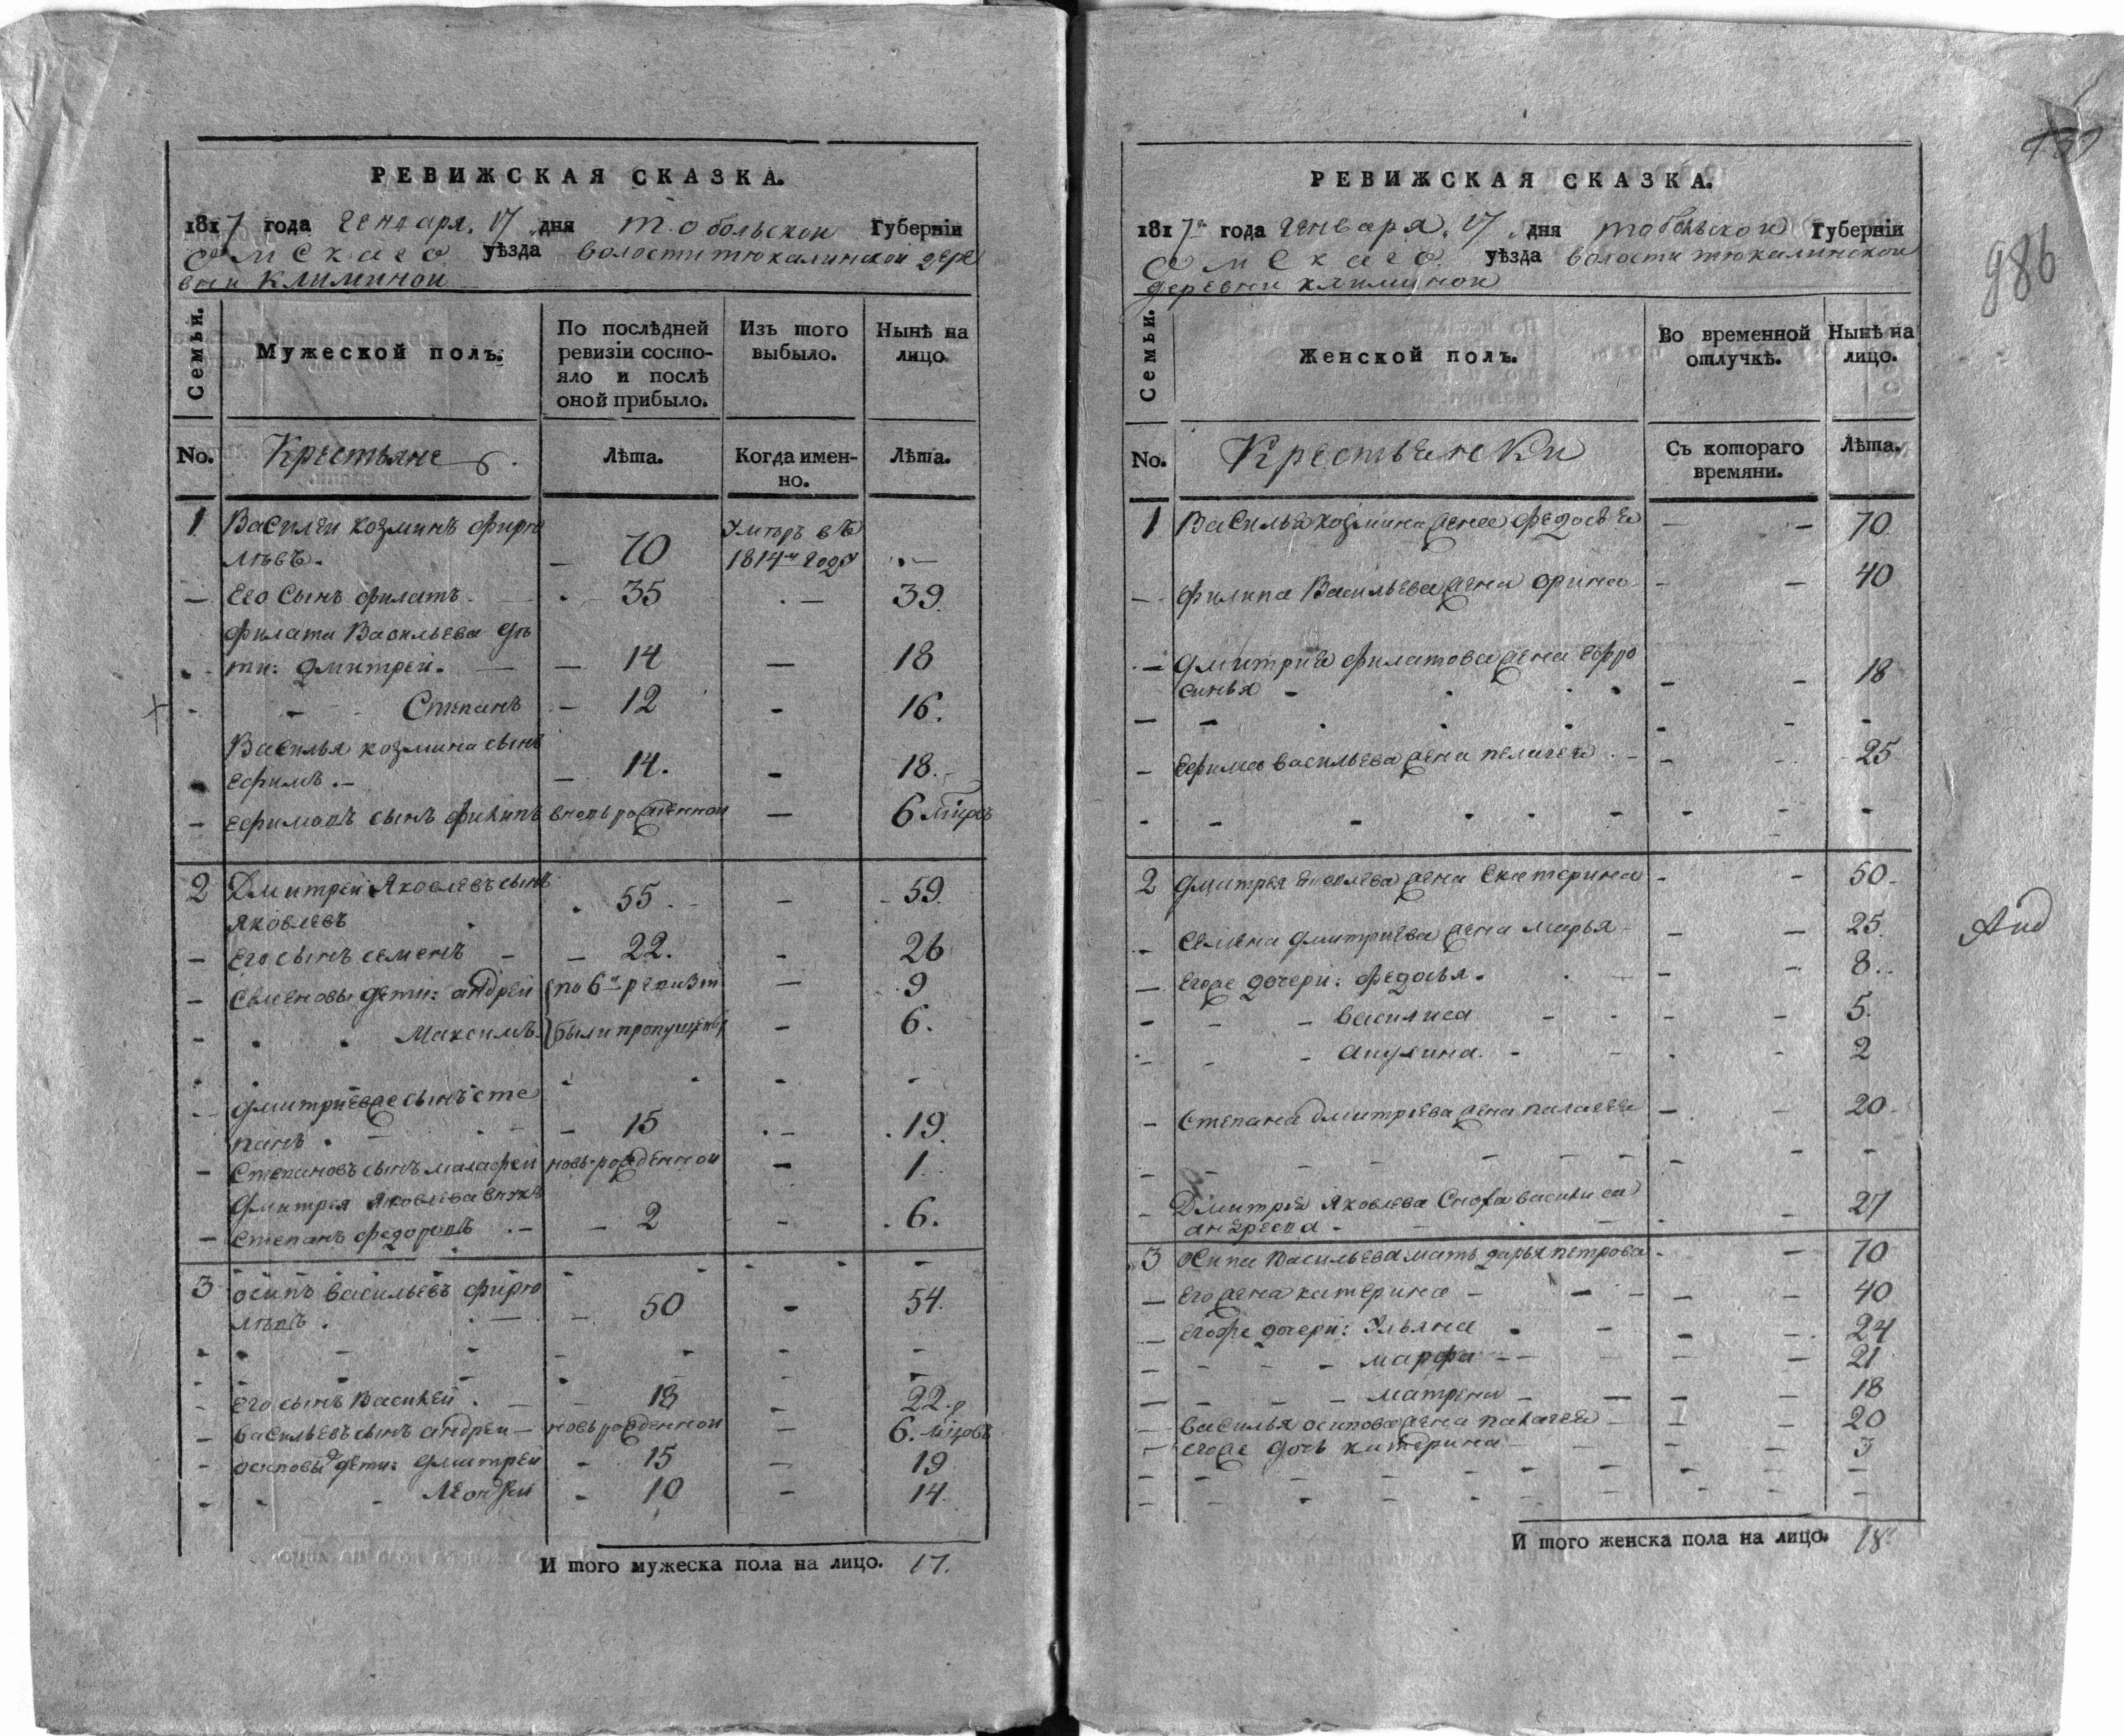 РЕВИЖСКАЯ СКАЗКА.
1817 года Генваря 17 дня Тобольской Губерніи
Омскаго уѣзда волости тюкалинской дере
вни Климиной
Семьи.
Мужеской полъ.
По послѣдней
ревизіи состо-
яло и послѣ
оной прибыло.
Изъ того
выбыло.
Нынѣ на
лицо.
No. Крестьяне Лѣта. Когда имен-
но.
Лѣта.
1 Василеи козминъ фирю
лѣвъ. 70 Умеръ въ
1814м году
Его Сынъ филатъ 35 39.
филата Васильева дѣ
ти: дмитреи. 14 18
Степанъ 12 16.
Василья козмина сынъ
ефимъ. 14. 18.
ефимовъ сынъ филипъ вновь рожденнои 6 мцовъ
2 Дмитреи Яковлевъ сынъ
Яковлевъ 55. 59.
Его сынъ семенъ 22. 26
Семеновы дети: андреи по 6й ревизіи 9
Максимъ. были пропущены 6.
дмитриева же сынъ сте
панъ. 15 19.
Степановъ сынъ малафеи новь рожденнои 1.
дмитрея Яковлева внукъ
степанъ федоровъ 2 6.
3 осипъ васильевъ фирю
лѣвъ. 50 54.
его сынъ Василей 18 22.
васильевъ сынъ андреи новь рожденнои 6. мцовъ
осиповы дети: дмитреи 15 19
Леонтеи 10 14.
И того мужеска пола на лицо. 17.
РЕВИЖСКАЯ СКАЗКА.
1817го года генваря 17 дня тобольской Губерніи
Омскаго уѣзда волости тюкалинской
деревни климиной
Семьи.
Женской полъ.
Во временной
отлучкѣ.
Нынѣ на
лицо.
No. Крестьянки Съ котораго
времяни.
Лѣта.
1 Василья козмина жена федосья 70.
филипа Васильева жена орина 40
дмитрия филатова жена ефро
синья 18
ефима васильева жена пелагея 25
2 дмитрея яковлева жена екатерина 50.
семена дмитриева жена марья 25.
его же дочери: федосья. 8.
василиса 5.
акулина. 2
степана дмитрева жена палагея 20.
Дмитрея Яковлева Сноха василиса
андреева 27
3 осипа Васильева мать дарья петрова 70
его жена катерина 40
его же дочери: Ульяна 24
марфа 21
матрена 18
василья осипова жена палагея 20
его же дочь катерина 3
И того женска пола на лицо. 18
986